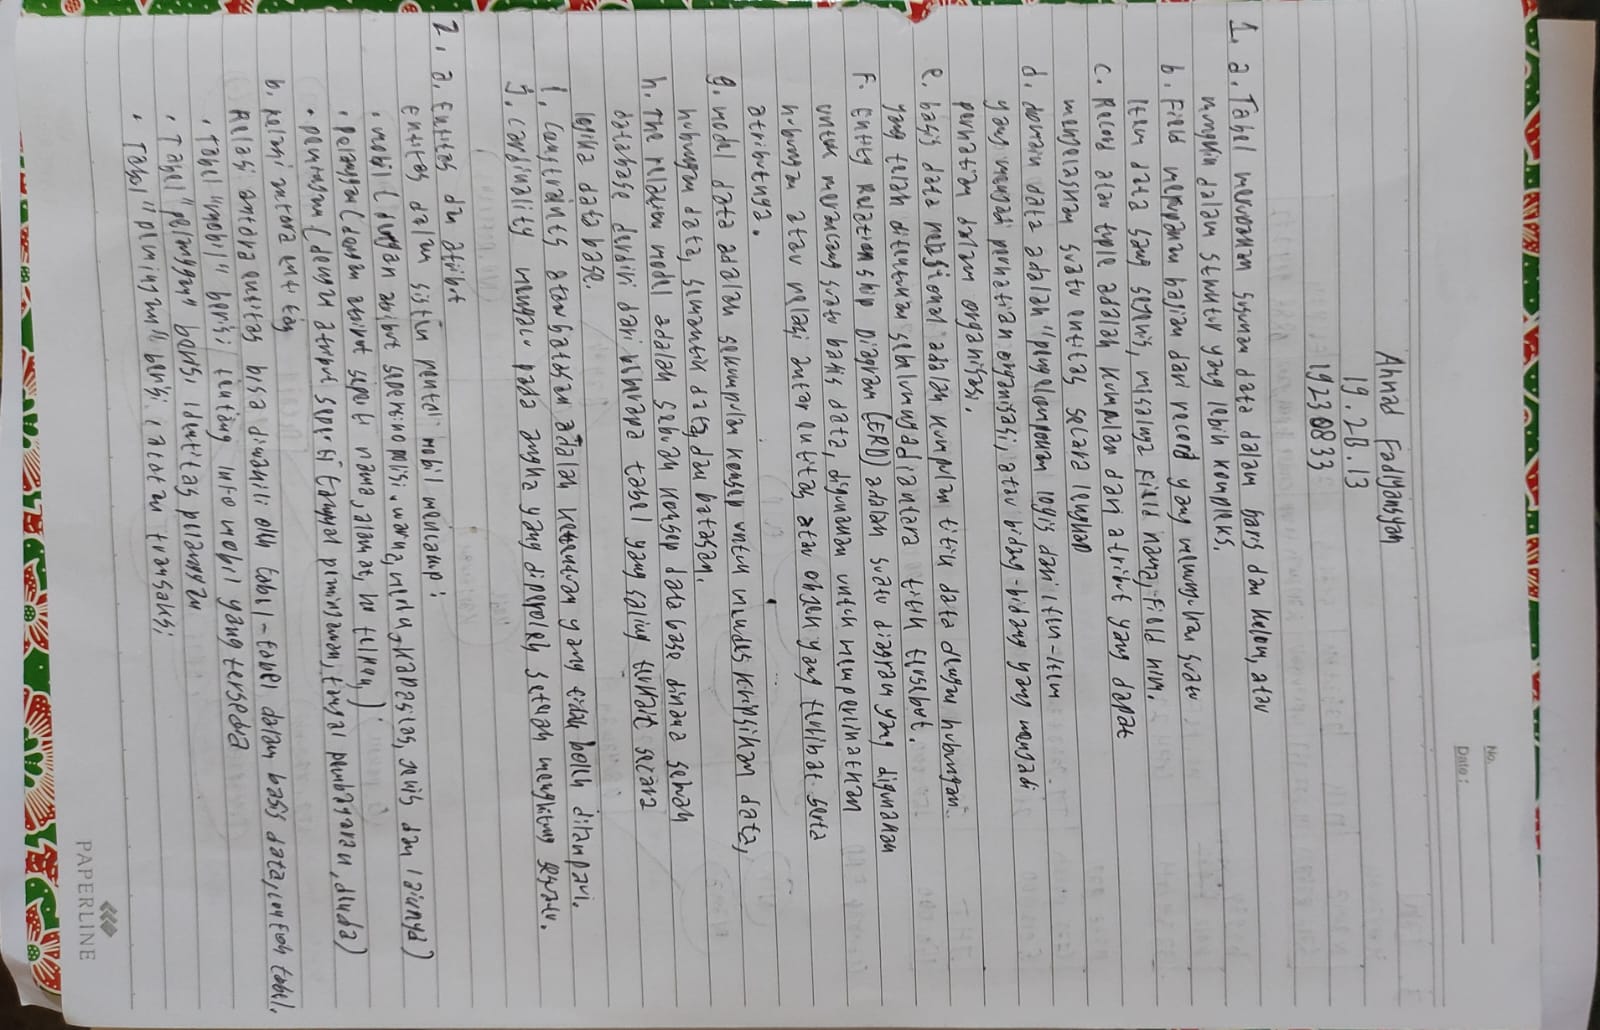 No.
Date :
Ahmad Fadlyansyah
19.2B.13
19230833
1. a. Tabel merupakan susunan data dalam baris dan kolom, atau
mungkin dalam struktur yang lebih kompleks.
b. Field merupakan bagian dari record yang menunjukan suatu
item data yang sejenis, misalnya field nama, field nim.
c. Record atau tuple adalah kumpulan dari atribut yang dapat
menjelaskan suatu entitas secara lengkap
d. domain data adalah "pengelompokan logis dari item-item
yang menjadi perhatian organisasi, atau bidang-bidang yang menjadi
perhatian dalam organisasi.
e. basis data relasional adalah kumpulan titik data dengan hubungan
yang telah ditentukan sebelumnya diantara titik tersebut.
F. Entity Relationship Diagram (ERD) adalah suatu diagram yang digunakan
untuk merancang suatu basis data, digunakan untuk memperlihatkan
hubungan atau relasi antar entitas atau objek yang terlibat serta
atributnya.
g. model data adalah sekumpulan konsep untuk mendeskripsikan data,
hubungan data, semantik data, dan batasan.
h. The relation model adalah sebuah konsep database dimana sebuah
database terdiri dari beberapa tabel yang saling terkait secara
logika database.
i. Constraints atau batasan adalah ketentuan yang tidak boleh dilampaui.
j. Cardinality mengacu pada angka yang diperoleh setelah menghitung sesuatu.
2. a. Entitas dan atribut
Entitas dalam sistem rental mobil mencakup:
• mobil (dengan atribut seperti no polisi, warna, merk, kapasitas, jenis dan lainnya)
• pelanggan (dengan atribut seperti nama, alamat, no telpon,)
• peminjaman (dengan atribut seperti tanggal peminjaman, tanggal pembayaran, denda)
b. Relasi antara entitas
Relasi antara entitas bisa diwakili oleh tabel-tabel dalam basis data, contoh tabel.
• Tabel "mobil" berisi tentang info mobil yang tersedia
• Tabel "pelanggan" berisi identitas pelanggan
• Tabel "peminjam" berisi catatan transaksi
PAPERLINE